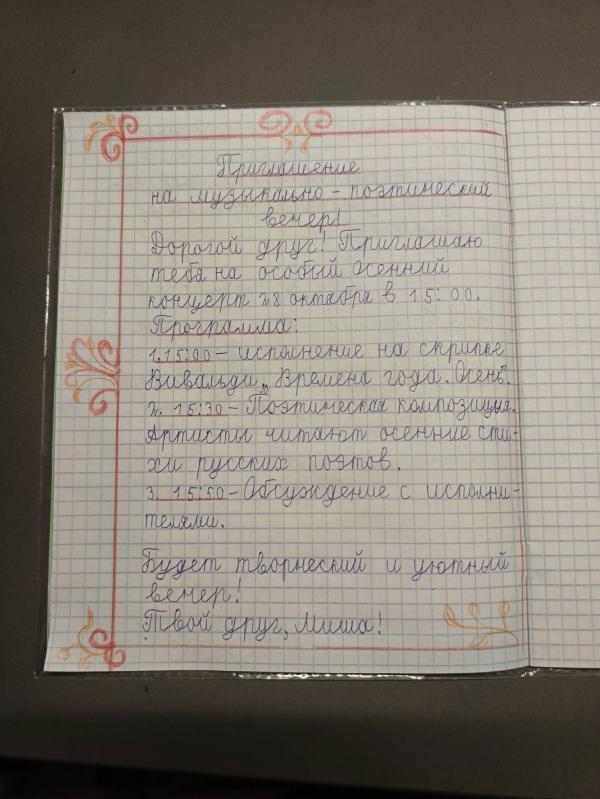 Приглашение
на музыкально - поэтический
вечер!
Дорогой друг! Приглашаю
тебя на особый Осенний
концерт 28 октября в 15:00.
Программа:
1. 15:00 - исполнение на скрипке
Вивальди „Времена года. Осень".
2. 15:30 - Поэтическая композиция.
Артисты читают осенние сти-
хи русских поэтов.
3. 15:50 - Обсуждение с исполни-
телями.
Будет творческий и уютный
вечер!
Твой друг, Миша!